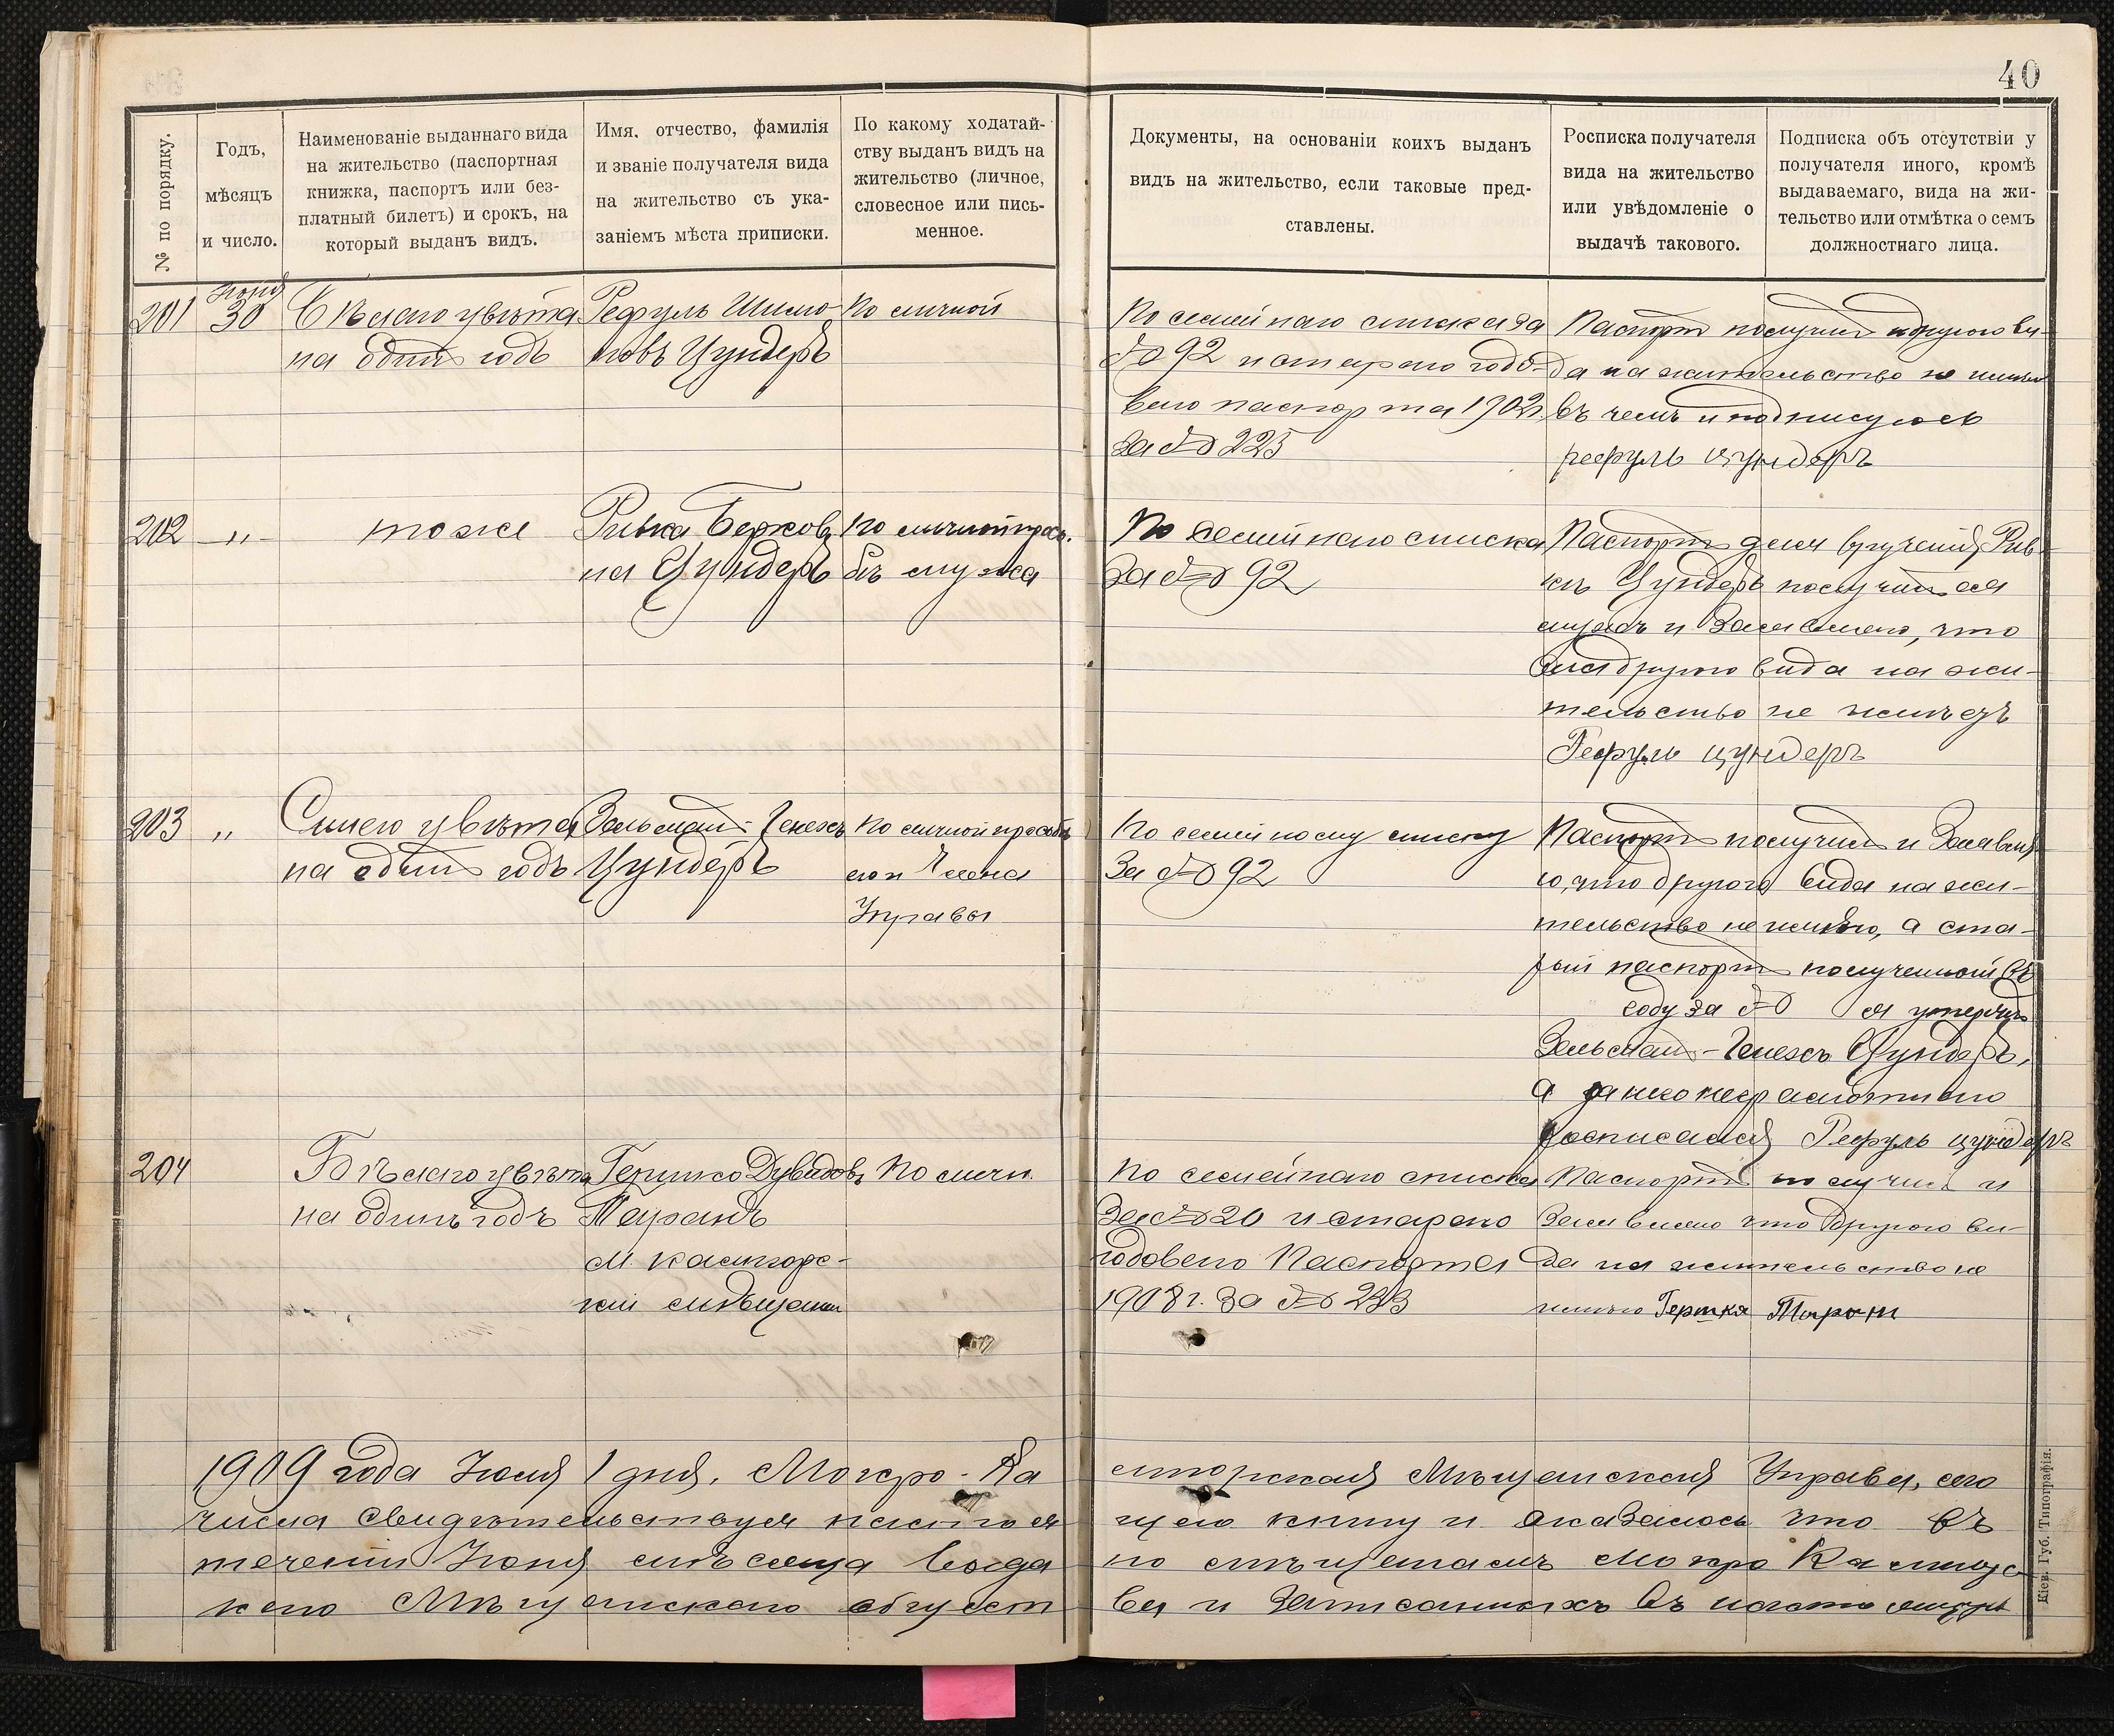 40
№ по порядку.
Годъ,
мѣсяцъ
и число.
Наименованіе выданнаго вида
на жительство (паспортная
книжка, паспортъ или без-
платный билетъ) и срокъ, на
который выданъ видъ.
Имя, отчество, фамилія
и званіе получателя вида
на жительство съ ука-
заніемъ мѣста приписки.
По какому ходатай-
ству выданъ видъ на
жительство (личное,
словесное или пись-
менное.
Документы, на основаніи коихъ выданъ
видъ на жительство, если таковые пред-
ставлены.
Росписка получателя
вида на жительство
или увѣдомленіе о
выдачѣ такового.
Подписка объ отсутствіи у
получателя иного, кромѣ
выдаваемаго, вида на жи-
тельство или отмѣтка о семъ
должностнаго лица.
201
Іюня
30
цвѣта
на одинъ годъ
Рефуль Шимо-
новъ Цундеръ
По личной
По семейнаго списка за
№ 92 и стараго годо-
вого паспорта 1902г.
за № 225
Паспортъ получилъ и другого ви-
да на жительство не имѣю
въ чемъ и подписуюсь
рефуль цундеръ
202
"
тоже
Ривка Берков-
на Цундеръ
По личной прось-
бѣ мужа
По семейнаго списка
За № 92
Паспортъ для врученія Рив-
кѣ Цундеръ получилъ ея
мужъ и Заявлено, что
она другого вида на жи-
тельство не имѣетъ
Рефуль цундеръ
203
"
Синего цвѣта
на одинъ годъ
Зельманъ-Генехъ
Цундеръ
По личной просьбѣ
его и Члена
Управы
По семейному списку
За № 92
Паспортъ получилъ и Заявля-
ю, что другого вида на жи-
тельство не имѣю, а ста-
рый паспортъ полученный въ
году за № я утерялъ
Зельманъ-Генехъ Цундеръ,
а за него неграмотнаго
росписался Рефуль цундеръ
204
Бѣлаго цвѣта
на одинъ годъ
Гершко Дувидовъ
Таранъ
М. Кагарлыкс-
По личн.
По семейнаго списка
За № 20 и стараго
годоваго Паспорта
1908 г. За № 233
Паспортъ получилъ и
Заявлено что другого ви-
да на жительство не
имѣю Гершка Таран
1909 года Іюля 1 дня, Мокро-Ка
числа свидѣтельствуя настоя
теченіи Іюня мѣсяца выда
каго Мѣщанскаго общест
Мѣщанская Управа, сего
щею книгу и оказалось что въ
но мѣщанамъ Мокро
ва и Записанныхъ въ настоящую
Кіев. Губ. Типографія.